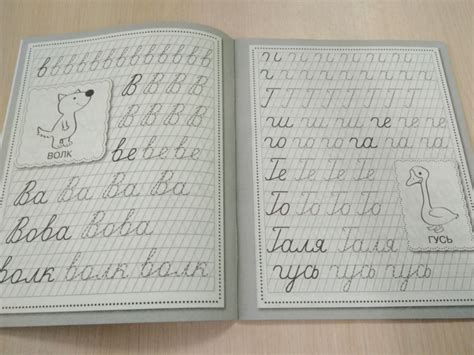 в в в в в в в в в в в в
В В В В В
В В В В
ВОЛК
ве ве ве
Ва Ва Ва Ва
Вова Вова
волк волк волк
г г г г г г г г г г г
г г г г г г г г г г
Г Г Г Г Г Г Г Г
ги ги ги ге ге ге
го го го га га га
Ге Ге Ге
Го Го Го
ГУСЬ
Галя Галя
гусь гусь гусь